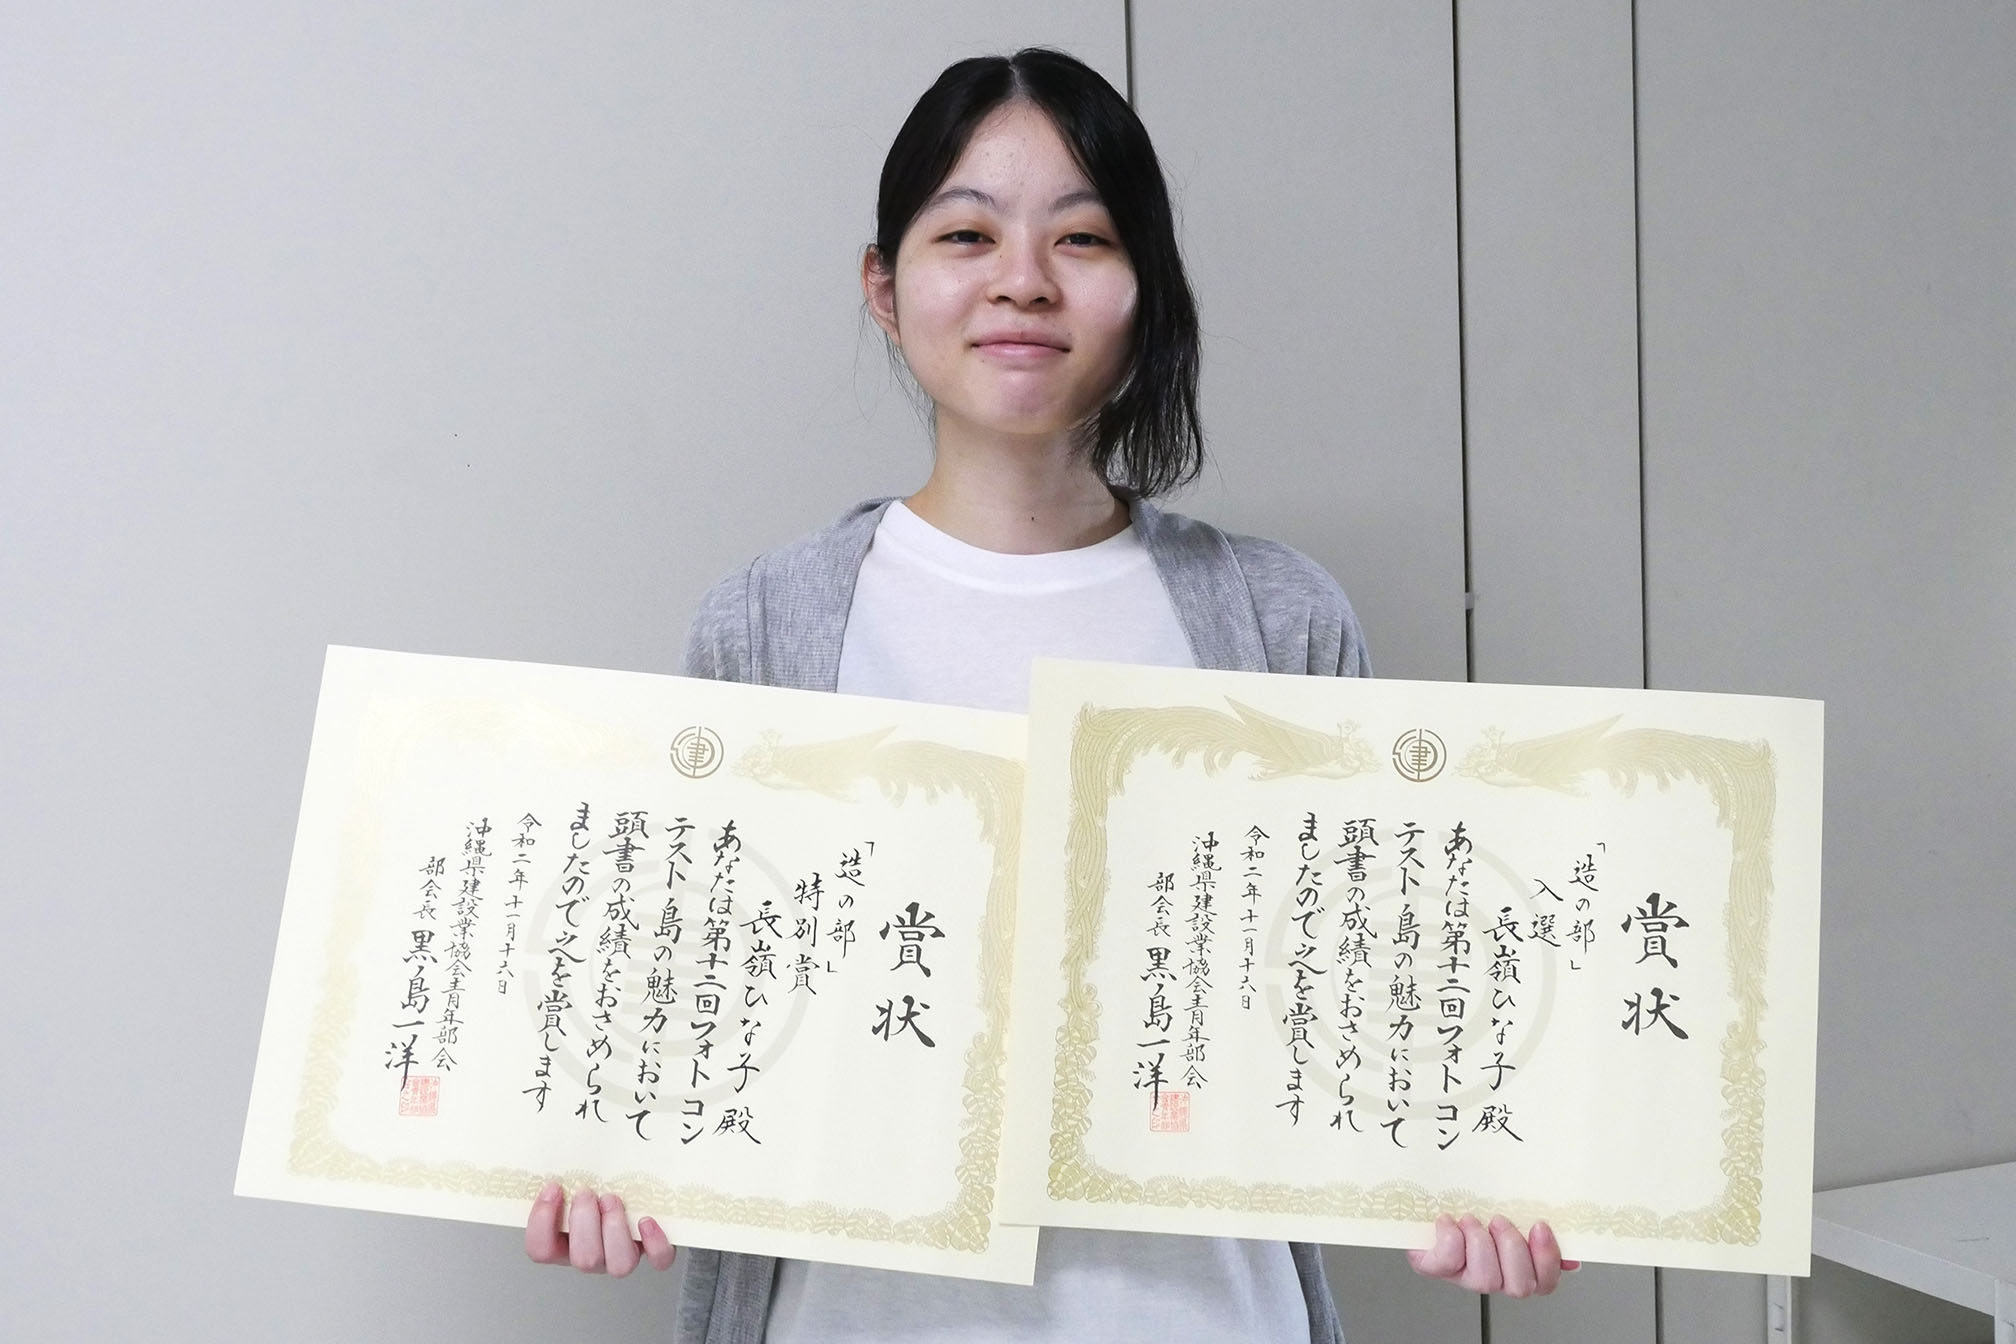 賞状
「造の部」
特別賞
長嶺ひな子 殿
あなたは第十二回フォトコン
テスト島の魅力において
頭書の成績をおさめられ
ましたので之を賞します
令和二年十一月十六日
沖縄県建設業協会青年部会
部会長 黒島一洋
賞状
「造の部」
入選
長嶺ひな子 殿
あなたは第十二回フォトコン
テスト島の魅力において
頭書の成績をおさめられ
ましたので之を賞します
令和二年十一月十六日
沖縄県建設業協会青年部会
部会長 黒島一洋